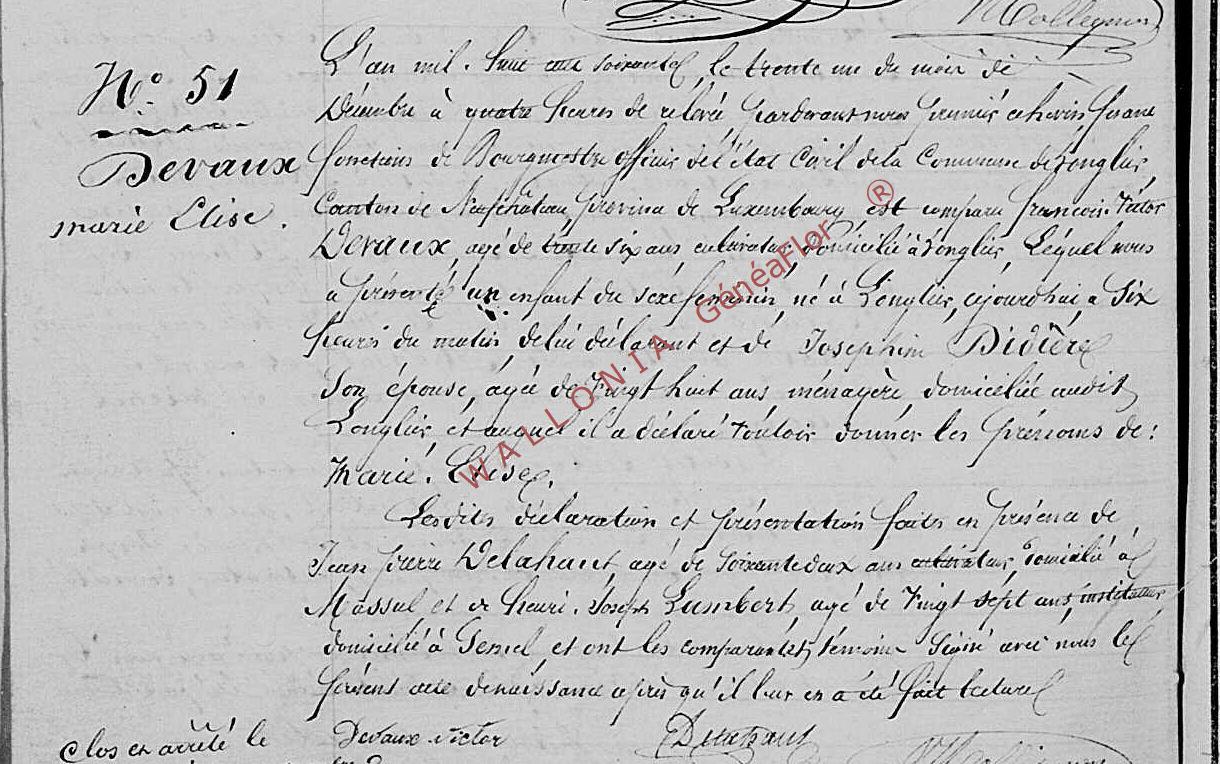 VCollignon
N° 51
Devaux
marie Elise.
L'an mil. huit cent soixante, le trente un du mois de
Décembre à quatre heures de rélevée pardevant nous premier echevin faisant
fonctions de Bourgmestre officier de l'état Civil de la Commune de Longlier,
Canton de Neufchâteau, province de Luxembourg est comparu françois. Victor
Devaux, agé de trente six ans cultivateur, domicilié à Longlier, Lequel nous
a présenté un enfant du sexe feminin, né à Longlier, cejourdhui, a six
heures du matin, de lui déclarant et de Josephine Didière
Son épouse, agée de Vingt huit ans ménagère domiciliée audit
Longlier, et auquel il a déclaré vouloir donner les prénoms de:
Marie. Elise.
Lesdits déclaration et présentation faites en présence de
Jean pierre Delahaut agé de soixante deux ans cultivateur domicilié à
Massul et de henri. Joseph Lambert, agé de Vingt sept ans, instituteur,
domicilié à Semel, et ont les comparant et témoins Signé avec nous le
présent acte de naissance après qu'il leur en a été fait lecture
Devaux victor
Delahaut
VCollignon
clos et arrêté le
WALLONIA GénéaFlor ®